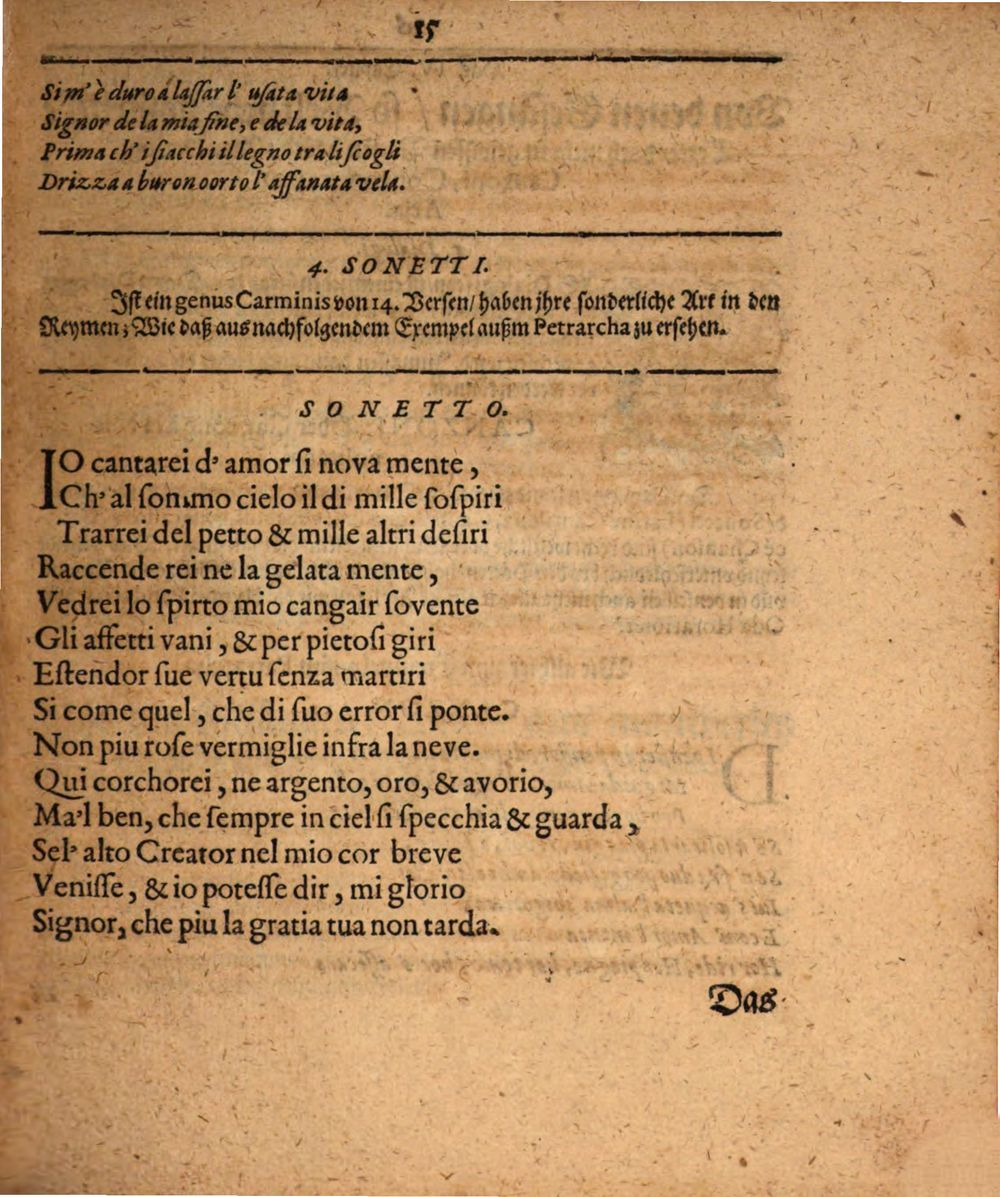 15
Si m' è duro á laſſar l' uſata vita
Signor de la mia fine, e de la vita,
Prima ch' i fiacchi il legno tra li ſcogli
Drizza a buron oorto l' affanata vela.
4. SONETTI.
Jſt ein genus Carminis von 14. Verſen / haben jhre ſonderliche Art in den
Reymen; Wie daß aus nachfolgendem Exempel außm Petrarcha zu erſehen.
SONETTO.
IO cantarei d' amor ſi nova mente,
Ch' al ſommo cielo il di mille ſoſpiri
Trarrei del petto & mille altri deſiri
Raccende rei ne la gelata mente,
Vedrei lo ſpirto mio cangair ſovente
Gli affetti vani, & per pietoſi giri
Eſtendor ſue vertu ſenza martiri
Si come quel, che di ſuo error ſi ponte.
Non piu roſe vermiglie infra la neve.
Qui corchorei, ne argento, oro, & avorio,
Ma'l ben, che ſempre in ciel ſi ſpecchia & guarda,
Sel' alto Creator nel mio cor breve
Veniſſe, & io poteſſe dir, mi glorio
Signor, che piu la gratia tua non tarda.
Das